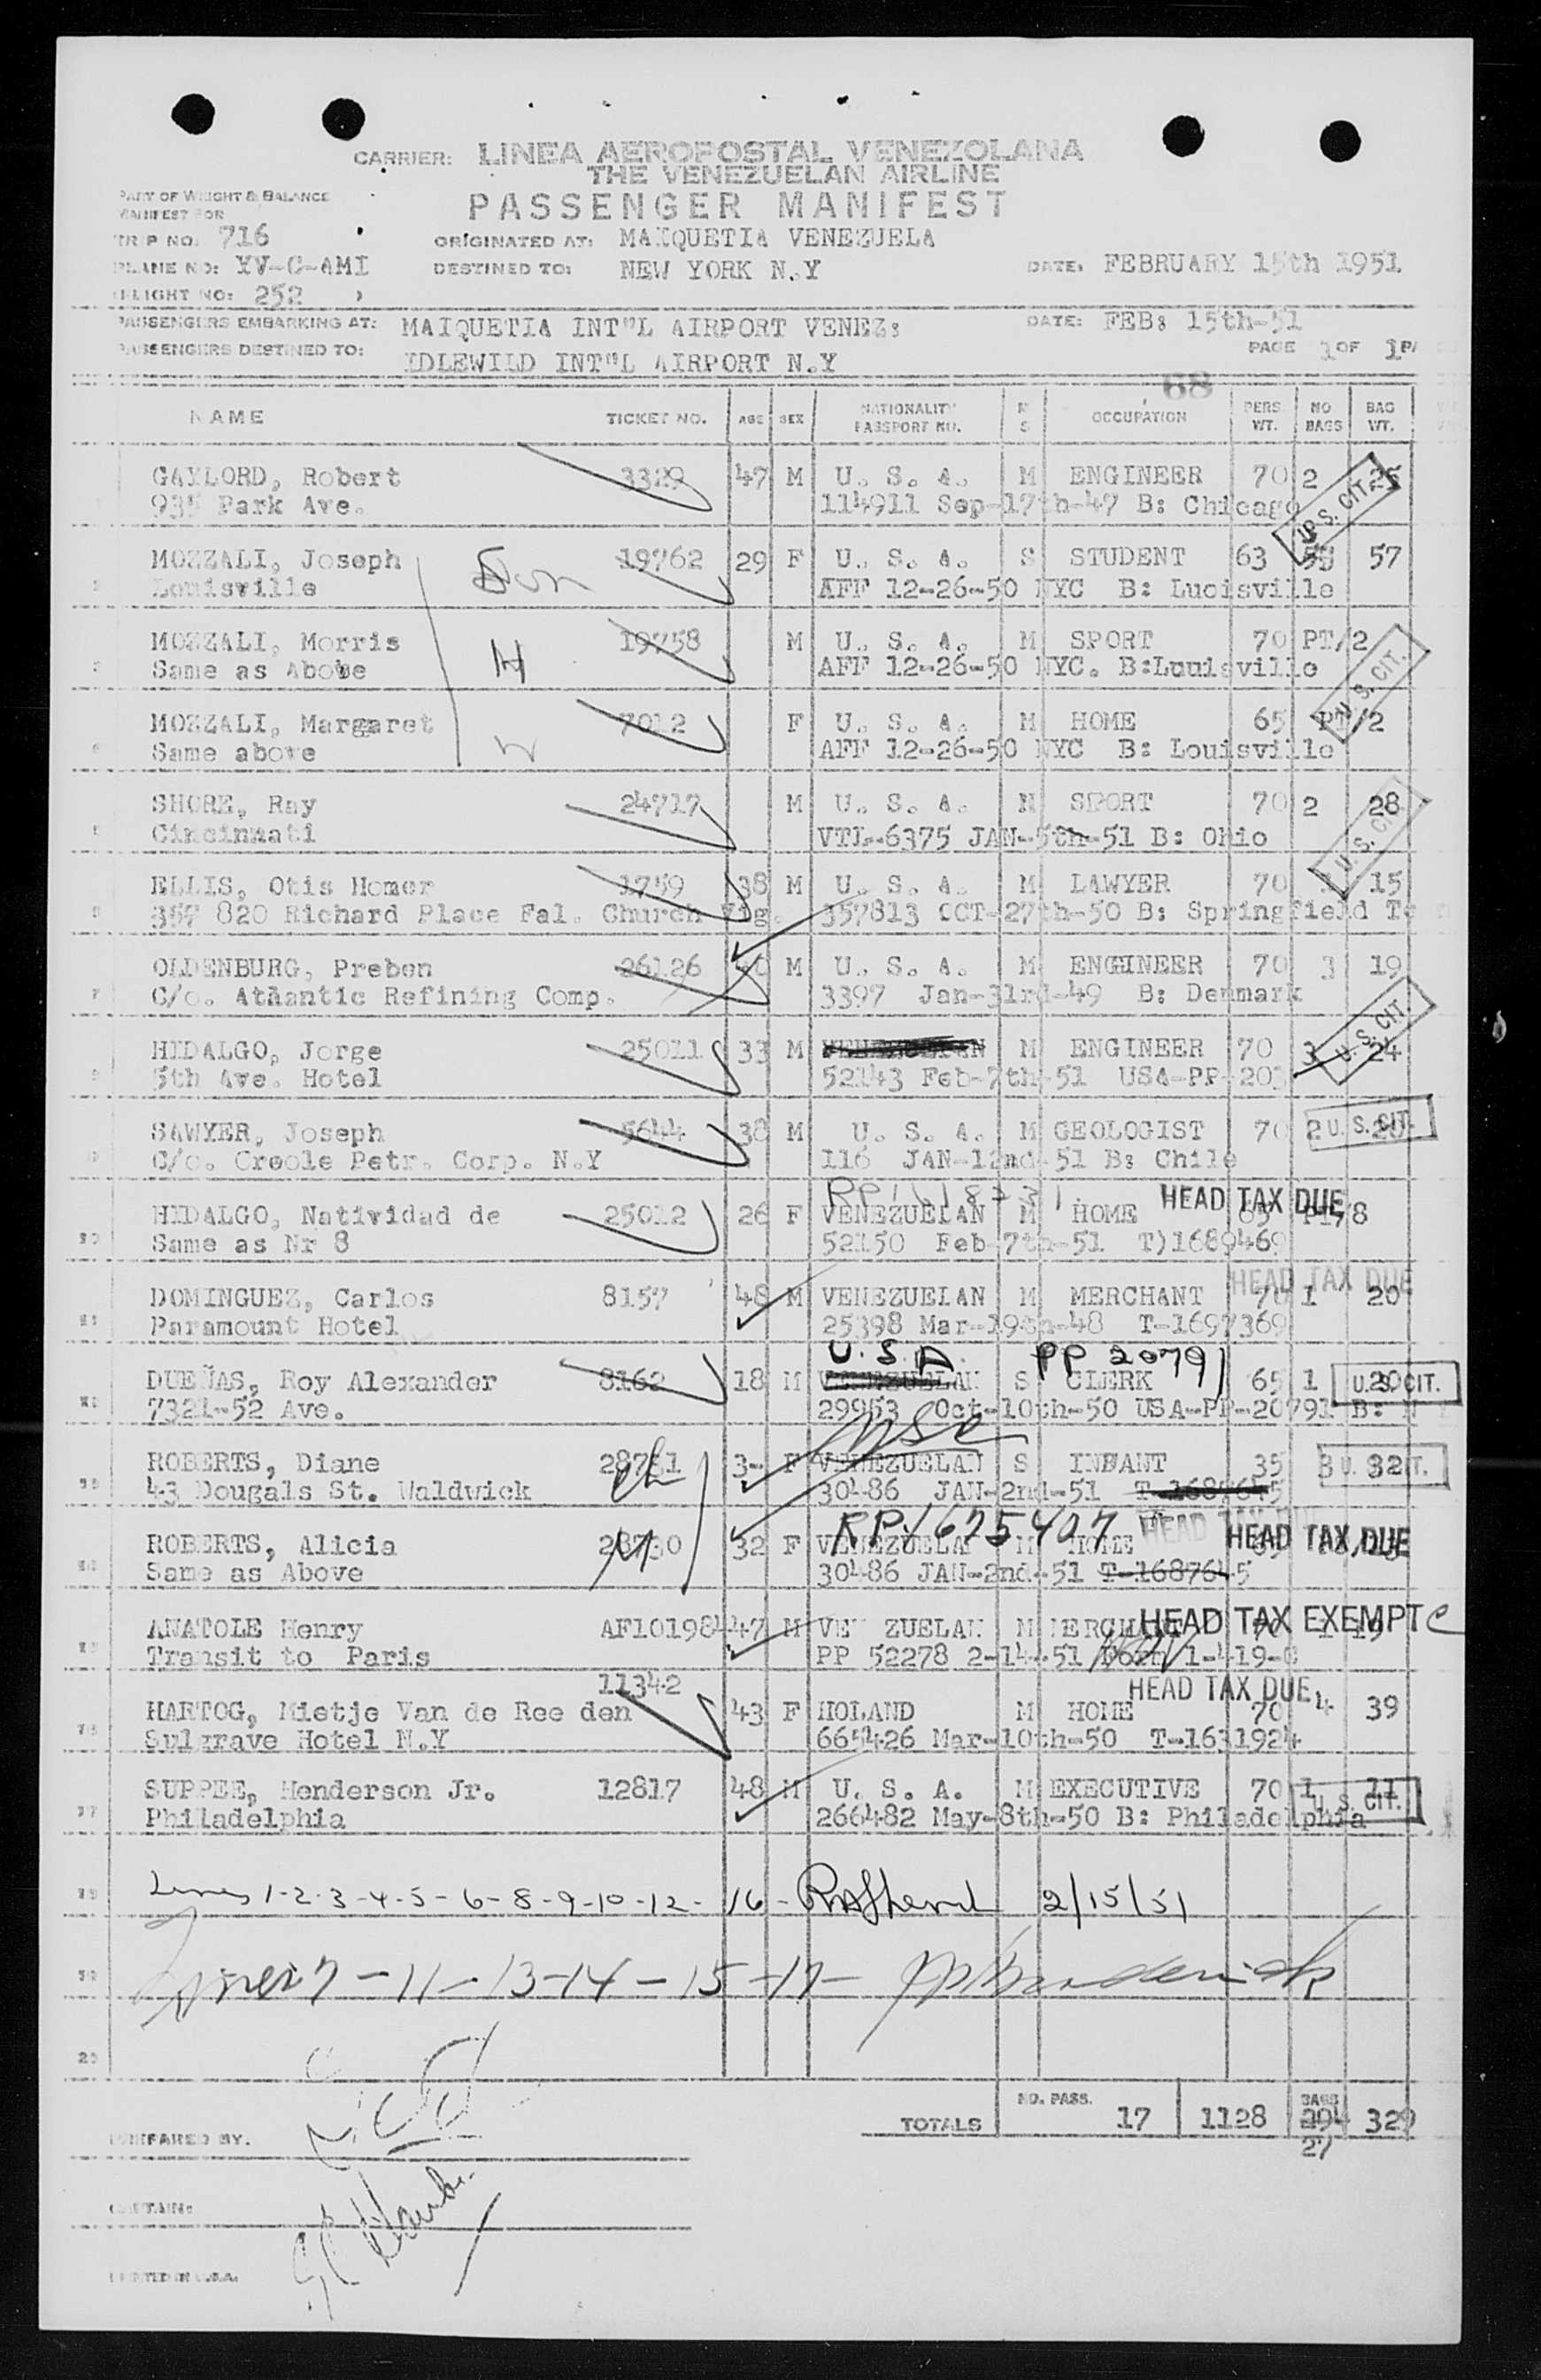 CARRIER: LINEA AEROPOSTAL VENEZOLANA
THE VENEZUELAN AIRLINE
PASSENGER MANIFEST
PART OF WEIGHT & BALANCE
MANIFEST FOR
TRIP NO. 716
ORIGINATED AT: MAIQUETIA VENEZUELA
PLANE NO: YV-C-AMI
DESTINED TO: NEW YORK N.Y
DATE: FEBRUARY 15th 1951
FLIGHT NO: 252
PASSENGERS EMBARKING AT: MAIQUETIA INT"L AIRPORT VENEZ:
DATE: FEB: 15th-51
PASSENGERS DESTINED TO: IDLEWILD INT"L AIRPORT N.Y
PAGE 1 OF 1 PA
68
NAME TICKET NO. AGE SEX NATIONALITY PASSPORT NO. M S OCCUPATION PERS. WT. NO BAGS BAG WT.
GAYLORD, Robert 3329 47 M U. S. A. M ENGINEER 70 2 25
935 Park Ave. 114911 Sep-17th-47 B: Chicago
U. S. CIT.
MOZZALI, Joseph Son 19762 29 F U. S. A. S STUDENT 63 57
Louisville AFF 12-26-50 NYC B: Luoisville
MOZZALI, Morris H 19758 M U. S. A. M SPORT 70 PT/2
Same as Above AFF 12-26-50 NYC. B:Louisville
U. S. CIT.
MOZZALI, Margaret W 7012 F U. S. A. M HOME 65 PT/2
Same above AFF 12-26-50 NYC B: Louisville
SHORE, Ray 24717 M U. S. A. M SPORT 70 2 28
Cincinnati VTL-6375 JAN-5th-51 B: Ohio
U. S. CIT.
ELLIS, Otis Homer 1759 38 M U. S. A. M LAWYER 70 15
357 820 Richard Place Fal. Church Vig. 357813 OCT-27th-50 B: Springfield Te
OLDENBURG, Preben 26126 M U. S. A. M ENGHINEER 70 3 19
C/o. Atlantic Refining Comp. 3397 Jan-31rd-49 B: Denmark
U. S. CIT.
HIDALGO, Jorge 25011 33 M M ENGINEER 70 3 24
5th Ave. Hotel 52143 Feb-7th-51 USA-PP-203
SAWYER, Joseph 5644 38 M U. S. A. M GEOLOGIST 70 2 20
U. S. CIT.
C/o. Creole Petr. Corp. N.Y 116 JAN-12nd-51 B: Chile
HEAD TAX DUE
HIDALGO, Natividad de 25012 26 F VENEZUELAN M HOME 65 PT/8
Same as Nr 8 52150 Feb-7th-51 T)1689469
HEAD TAX DUE
DOMINGUEZ, Carlos 8157 48 M VENEZUELAN M MERCHANT 70 1 20
Paramount Hotel 25398 Mar-19th-48 T-1697369
U.S.A. PP 20791
DUEÑAS, Roy Alexander 8162 18 M VENEZUELAN S CLERK 65 1 20
U. S. CIT.
7321-52 Ave. 29953 Oct-10th-50 USA-PP-20791 B: N
USC
ROBERTS, Diane 28731 3- F VENEZUELAN S INFANT 35 3 32
U. S. CIT.
43 Dougals St. Waldwick Ch 30486 JAN-2nd-51 T-1687645
RP1675407 HEAD TAX DUE
ROBERTS, Alicia 28730 32 F VENEZUELAN M HOME
Same as Above 30486 JAN-2nd-51 T-1687645
HEAD TAX EXEMPT c
ANATOLE Henry AF101984 47 M VEN ZUELAN M MERCHANT 70 1 19
Transit to Paris PP 52278 2-14-51
11342
HEAD TAX DUE
HARTOG, Mietje Van de Ree den 43 F HOLAND M HOME 70 4 39
Sulgrave Hotel N.Y 664426 Mar-10th-50 T-1631924
SUPPEE, Henderson Jr. 12817 48 M U. S. A. M EXECUTIVE 70 1 11
U. S. CIT.
Philadelphia 266482 May-8th-50 B: Philadelphia
Lines 1-2-3-4-5-6-8-9-10-12-16- 2/15/51
Lines 7-11-13-14-15-17-
20
TOTALS NO. PASS. 17 1128 BAGS 27 329
PREPARED BY.
CAPTAIN:
PRINTED IN U.S.A.